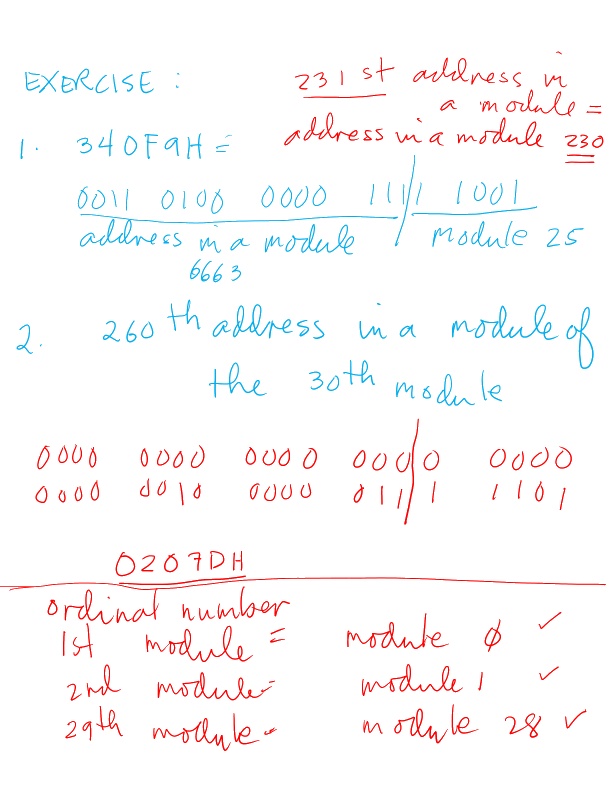 EXERCISE :
231st address in
a module =
address in a module 230
1. 340F9H =
0011 0100 0000 111/1 1001
address in a module / module 25
6663
2. 260th address in a module of
the 30th module
0000 0000 0000 000/0 0000
0000 0010 0000 011/1 1101
0207DH
ordinal number
1st module = module 0 ✓
2nd module = module 1 ✓
29th module = module 28 ✓